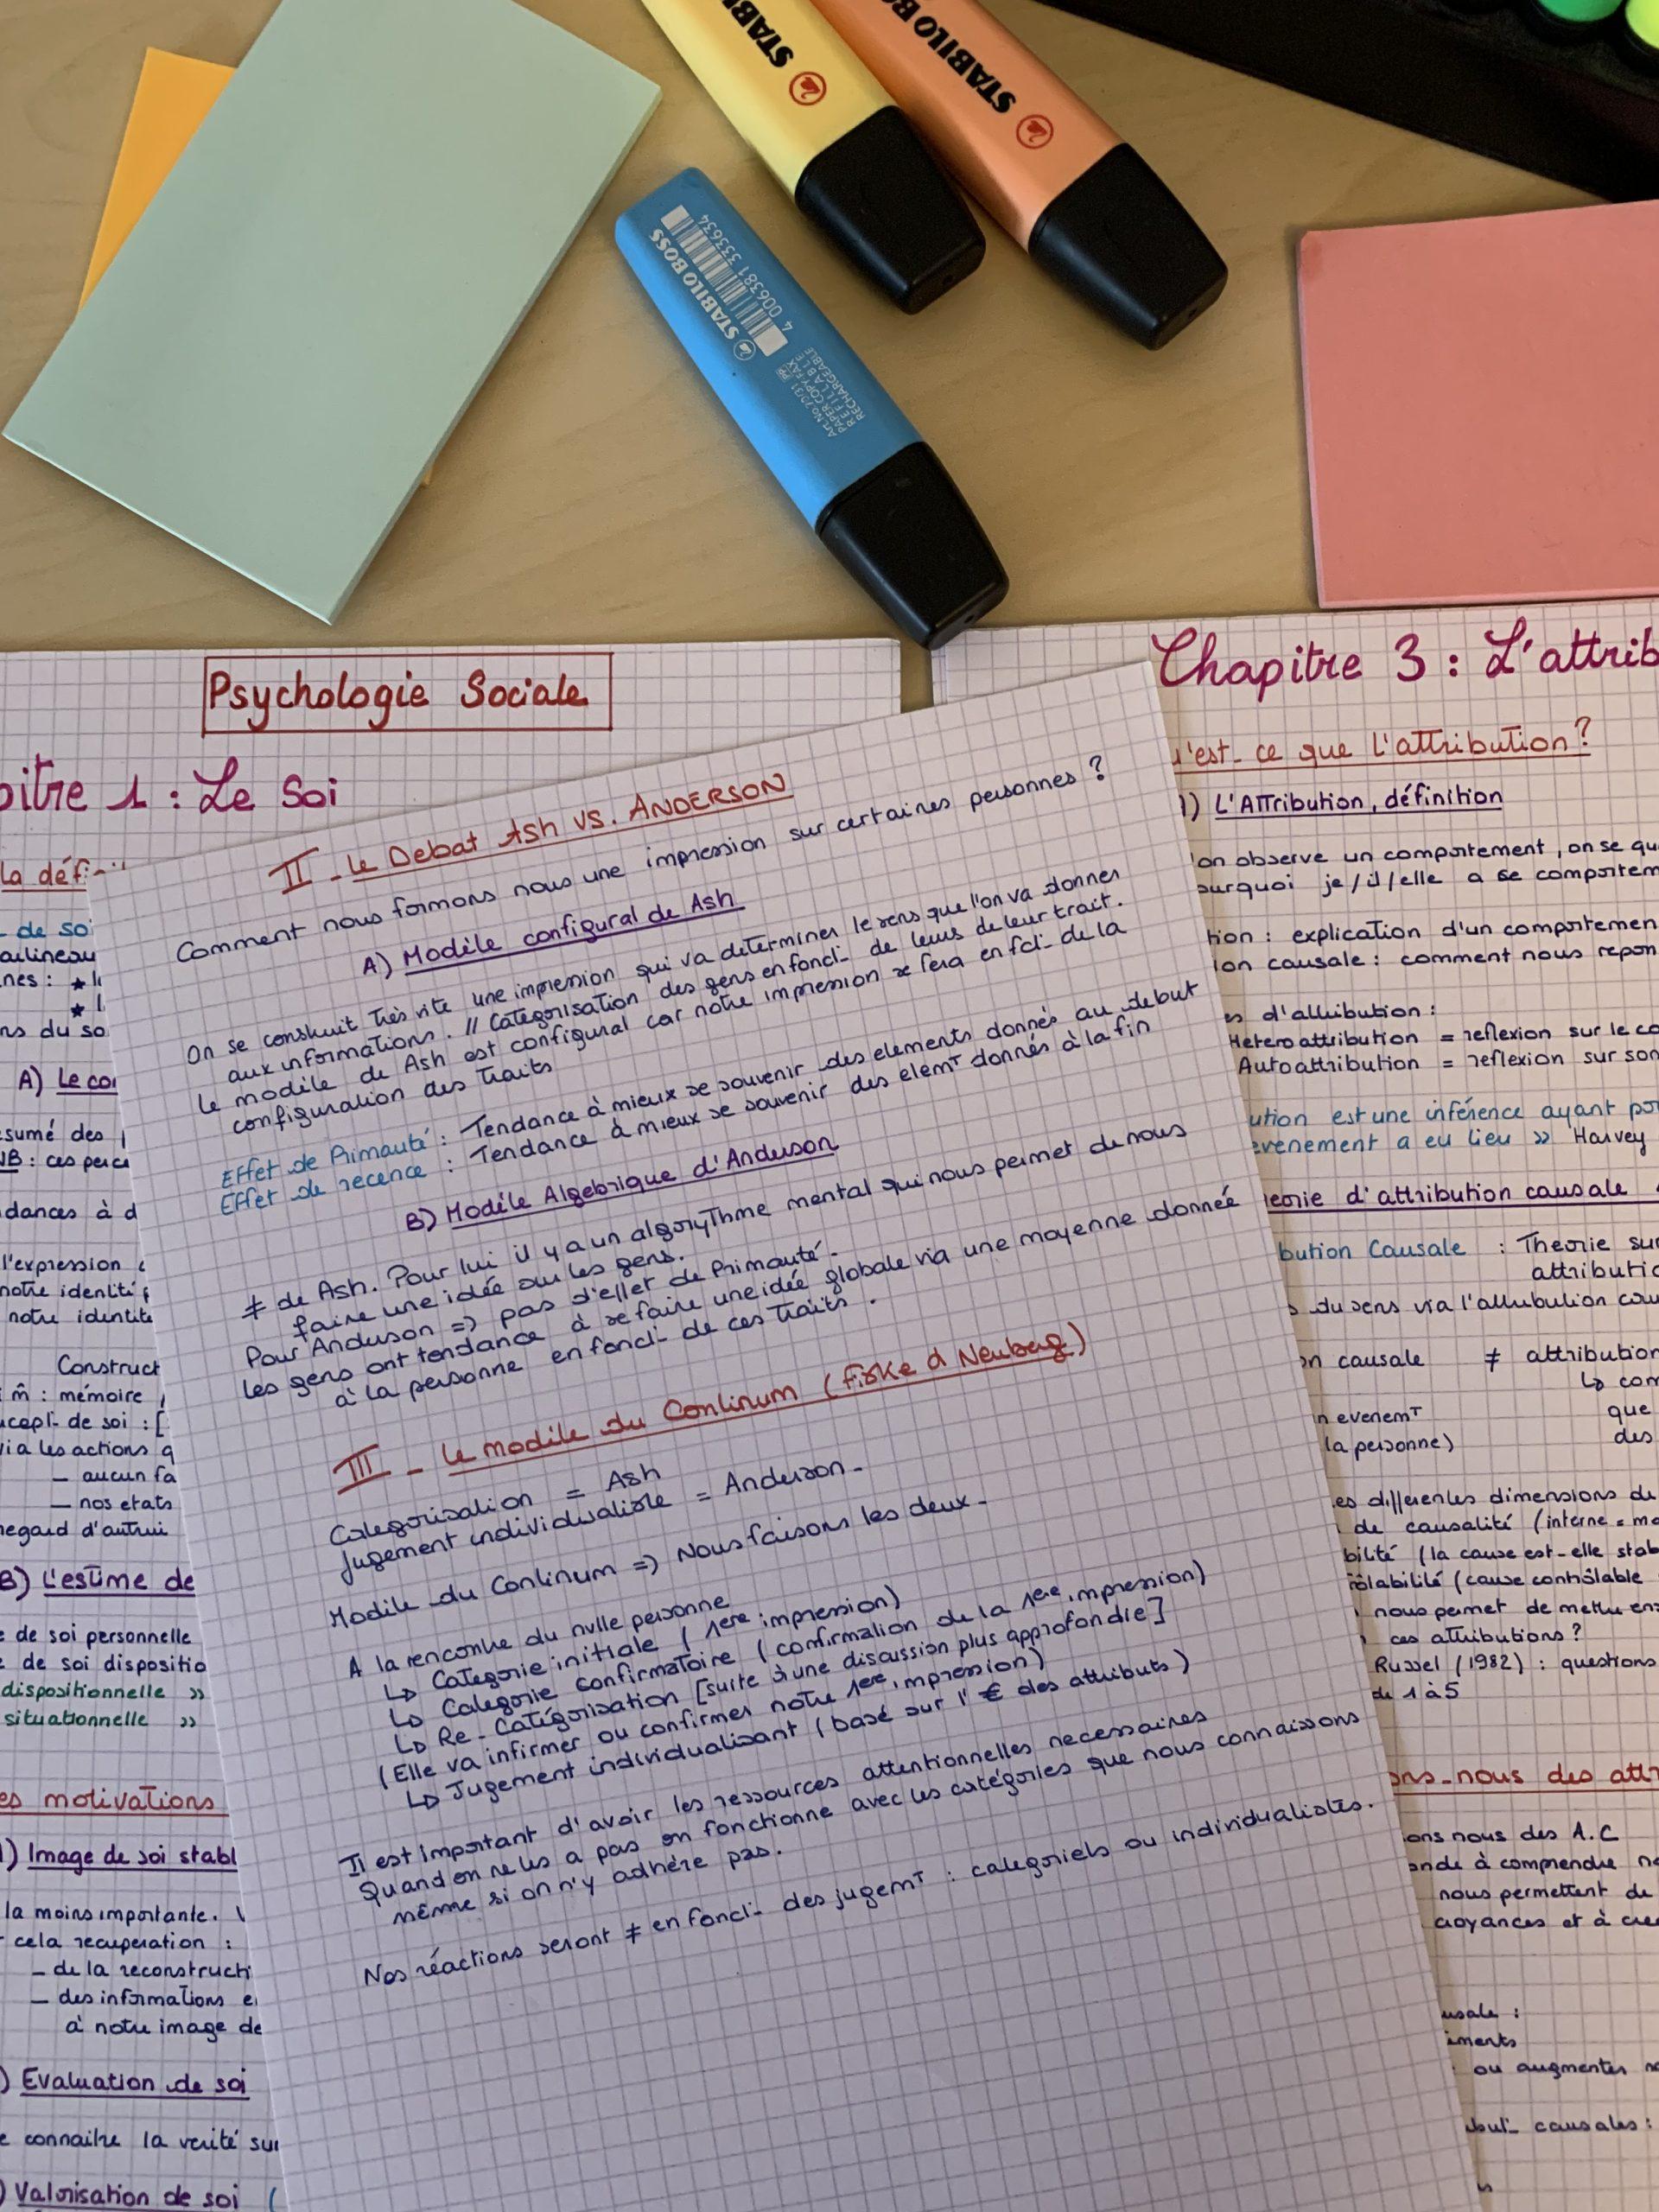 STABILO BO
STABI
STABILO BOSS
4 006381 333634
Art.No 70/31
PAPER COPY FAX
REFILLABLE
RECHARGEABLE
Psychologie Sociale
pitre 1 : Le Soi
la défi
- de soi
nes : ★
★
ns du so
A) Le co
sumé des
NB : ces perce
dances à d
l'expression
notre identité
notre identite
Construct
m̂ : mémoire
cept- de soi : [
via les actions q
— aucun fa
— nos etats
regard d'autrui
B) L'estime de
e de soi personnelle
e de soi dispositio
dispositionnelle »
situationnelle »
es motivations
1) Image de soi stabl
la moins importante.
cela recuperation :
- de la reconstructi
- des informations e
à notre image de
) Evaluation de soi
e connaitre la verité sur
) Valorisation de soi (
II - Le Debat Ash vs. ANDERSON
Comment nous formons nous une impression sur certaines personnes ?
A) Modèle configural de Ash
On se construit très vite une impression qui va déterminer le sens que l'on va donner
aux informations. // Catégorisation des gens en fonct- de leurs de leur trait.
Le modèle de Ash est configural car notre impression se fera en fct- de la
configuration des traits
Effet de Primauté : Tendance à mieux se souvenir des elements donnés au debut
Effet de recence : Tendance à mieux se souvenir des elemT donnés à la fin
B) Modèle Algebrique d'Anderson
≠ de Ash. Pour lui il y a un algorythme mental qui nous permet de nous
faire une idée sur les gens.
Pour Anderson => pas d'effet de Primauté.
Les gens ont tendance à se faire une idée globale via une moyenne donnée
à la personne en fonct- de ces traits.
III - Le modèle du Continum (Fiske et Neuberg)
Categorisation = Ash
Jugement individualiste = Anderson-
Modèle du Continum => Nous faisons les deux-
A la rencontre du nvlle personne
↳ Categorie initiale (1ere impression)
↳ Categorie confirmatoire (confirmation de la 1ere impression)
↳ Re-Catégorisation [suite à une discussion plus approfondie]
(Elle va infirmer ou confirmer notre 1ere impression)
↳ Jugement individualisant (basé sur l' € des attributs)
Il est important d'avoir les ressources attentionnelles necessaires
Quand on ne les a pas on fonctionne avec les catégories que nous connaissons
même si on n'y adhère pas.
Nos réactions seront ≠ en fonct- des jugemT : categoriels ou individualistes.
Chapitre 3 : L'attrib
u'est-ce que l'attribution ?
1) L'Attribution, définition
on observe un comportement, on se qu
ourquoi je/il/elle a se comportem
tion : explication d'un comportemen
ion causale : comment nous repon
es d'attribution :
Hetero attribution = reflexion sur le co
Auto attribution = reflexion sur son
ution est une inférence ayant po
evenement a eu lieu » Harvey
eorie d'attribution causale
bution Causale : Theorie sur
attributio
s du sens via l'attribution cau
on causale ≠ attribution
↳ com
n evenemT que
la personne) des
es differentes dimensions de
de causalité (interne = mo
bilité (la cause est-elle stab
rôlabilité (cause contrôlable
nous permet de mettre en
ces attributions ?
Russel (1982) : questions
de 1 à 5
ons-nous des attr
ons nous des A.C
ande à comprendre no
nous permettent de
croyances et à cree
usale :
éments
ou augmenter no
but- causales :